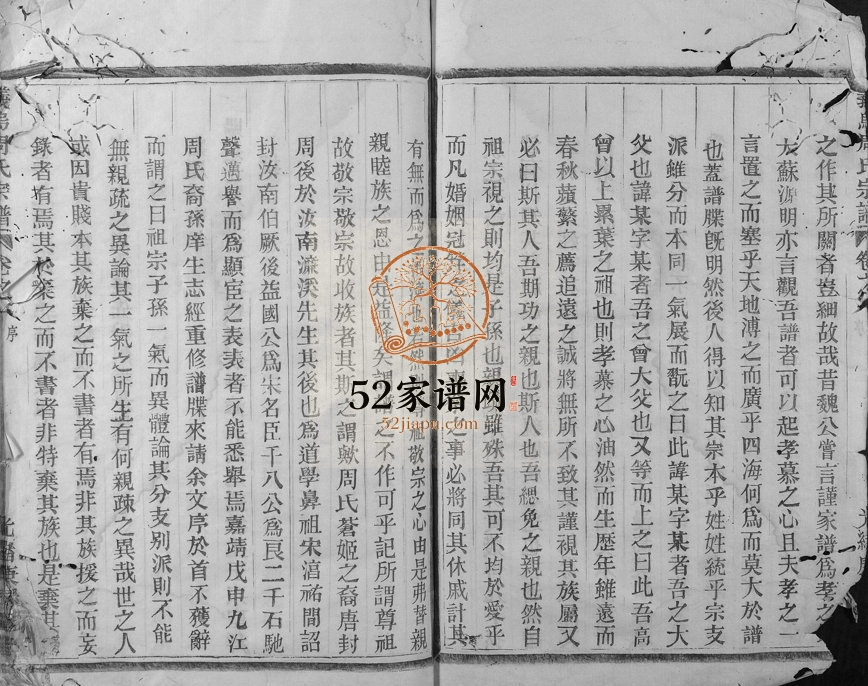 之作其所關者豈細故哉昔魏公嘗言謹家譜爲孝之
大蘇源明亦言觀吾譜者可以起孝慕之心且夫孝之一
言置之而塞乎天地溥之而廣乎四海何爲而莫大於譜
也蓋譜牒旣明然後人得以知其宗本乎姓姓統乎宗支
派雖分而本同一氣展而翫之曰此諱某字某者吾之大
父也諱某字某者吾之曾大父也又等而上之曰此吾高
曾以上累葉之祖也則孝慕之心油然而生歷年雖遠而
春秋蘋蘩之薦追遠之誠將無所不致其謹視其族屬又
必曰斯其人吾期功之親也斯人也吾緦免之親也然自
祖宗視之則均是子孫也親疎雖殊吾其可不均於愛乎
而凡婚姻冠之事必將同其休戚計其
有無而爲之敬宗之心由是弗替親
親睦族之恩由是益隆矣譜之不作可乎記所謂尊祖
故敬宗敬宗故收族者其斯之謂歟周氏蒼姬之裔唐封
周後於汝南濂溪先生其後也爲道學鼻祖宋淳祐間詔
封汝南伯厥後益國公爲宋名臣千八公爲良二千石馳
聲邁譽而爲顯宦之表表者不能悉舉焉嘉靖戊申九江
周氏裔孫庠生志經重修譜牒來請余文序於首不獲辭
而謂之曰祖宗子孫一氣而異體論其分支别派則不能
無親疏之異論其一氣之所生有何親疎之異哉世之人
或因貴賤本其族棄之而不書者有焉非其族援之而妄
錄者有焉其於棄之而不書者非特棄其族也是棄其
義烏周氏宗譜
卷之
序
52家谱网
52jiapu.com